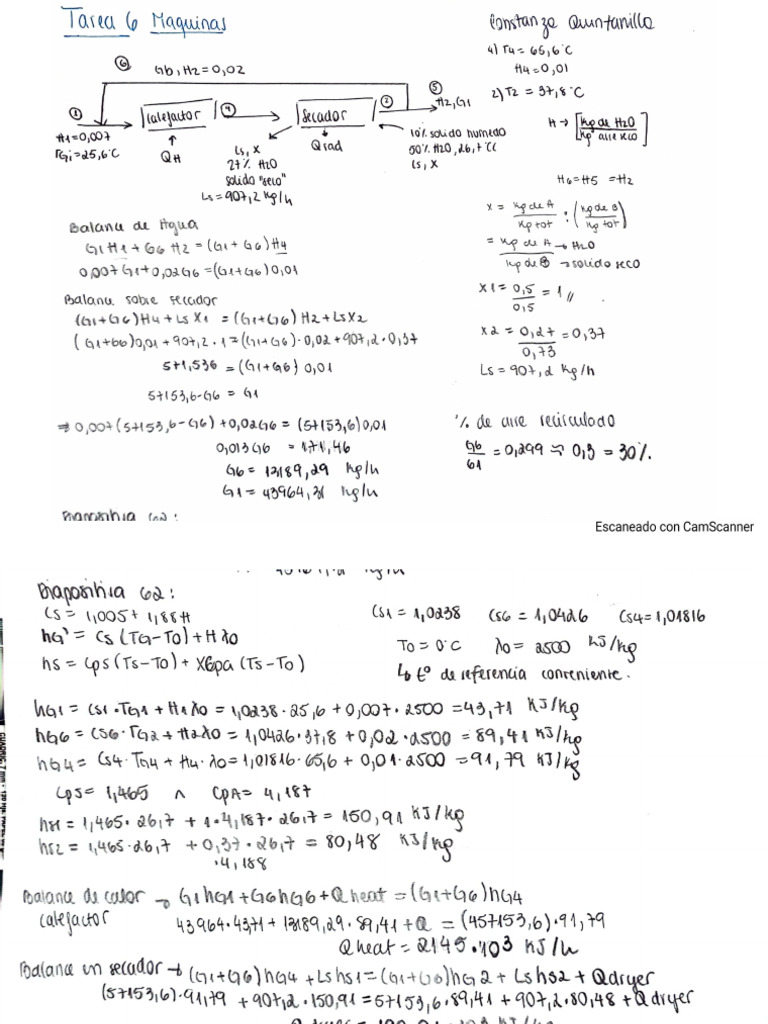 Tarea 6 Maquinas
Constanza Quintanilla
4) T4 = 65,6°C
H4 = 0,01
2) T2 = 37,8°C
H → [kg de H2O / kg aire seco]
⑥ G6, H2 = 0,02
① calefactor ④ Secador ② ⑤ H2, G1
H1 = 0,007
TG1 = 25,6°C
QH
Ls, X
27% H2O
solido "seco"
Ls = 907,2 kg/h
Qrad
solido humedo
50% H2O, 26,7°C
Ls, X
H6 = H5 = H2
X = kg de A / kg tot : (kg de B / kg tot)
= kg de A → H2O / kg de B → solido seco
X1 = 0,5 / 0,5 = 1 //
X2 = 0,27 / 0,73 = 0,37
Ls = 907,2 kg/h
Balance de Agua
G1H1 + G6H2 = (G1+G6)H4
0,007G1 + 0,02G6 = (G1+G6)0,01
Balance sobre secador
(G1+G6)H4 + LsX1 = (G1+G6)H2 + LsX2
(G1+G6)0,01 + 907,2·1 = (G1+G6)·0,02 + 907,2·0,37
= (G1+G6)0,01
57153,6 - G6 = G1
⇒ 0,007(57153,6 - G6) + 0,02G6 = (57153,6)0,01
0,013G6 = 171,46
G6 = 13189,29 kg/h
G1 = 43964,31 kg/h
% de aire recirculado
G6 / G1 = 0,299 ≈ 0,3 = 30%.
Escaneado con CamScanner
Diapositiva 62:
Cs = 1,005 + 1,88H
hG' = Cs(TG-T0) + Hλ0
Cs1 = 1,0238 Cs6 = 1,0426 Cs4 = 1,01816
T0 = 0°C λ0 = 2500 KJ/kg
↳ t° de referencia conveniente.
hG1 = Cs1·TG1 + H1λ0 = 1,0238·25,6 + 0,007·2500 = 43,71 KJ/kg
hG6 = Cs6·TG2 + H2λ0 = 1,0426·37,8 + 0,02·2500 = 89,41 KJ/kg
hG4 = Cs4·TG4 + H4·λ0 = 1,01816·65,6 + 0,01·2500 = 91,79 KJ/kg
CpS = 1,465 ∧ CpA = 4,187
hs1 = 1,465·26,7 + 1·4,187·26,7 = 150,91 KJ/kg
hs2 = 1,465·26,7 + 0,37·26,7 = 80,48 KJ/kg
·4,188
Balance de calor → G1hG1 + G6hG6 + Qheat = (G1+G6)hG4
calefactor
43964·4371 + 13189,29·89,41 + Q = (457153,6)·91,79
Qheat = 2145·10³ KJ/h
Balance en secador → (G1+G6)hG4 + Lshs1 = (G1+G6)hG2 + Lshs2 + Qdryer
(57153,6)·91,79 + 907,2·150,91 = 57153,6·89,41 + 907,2·80,48 + Qdryer